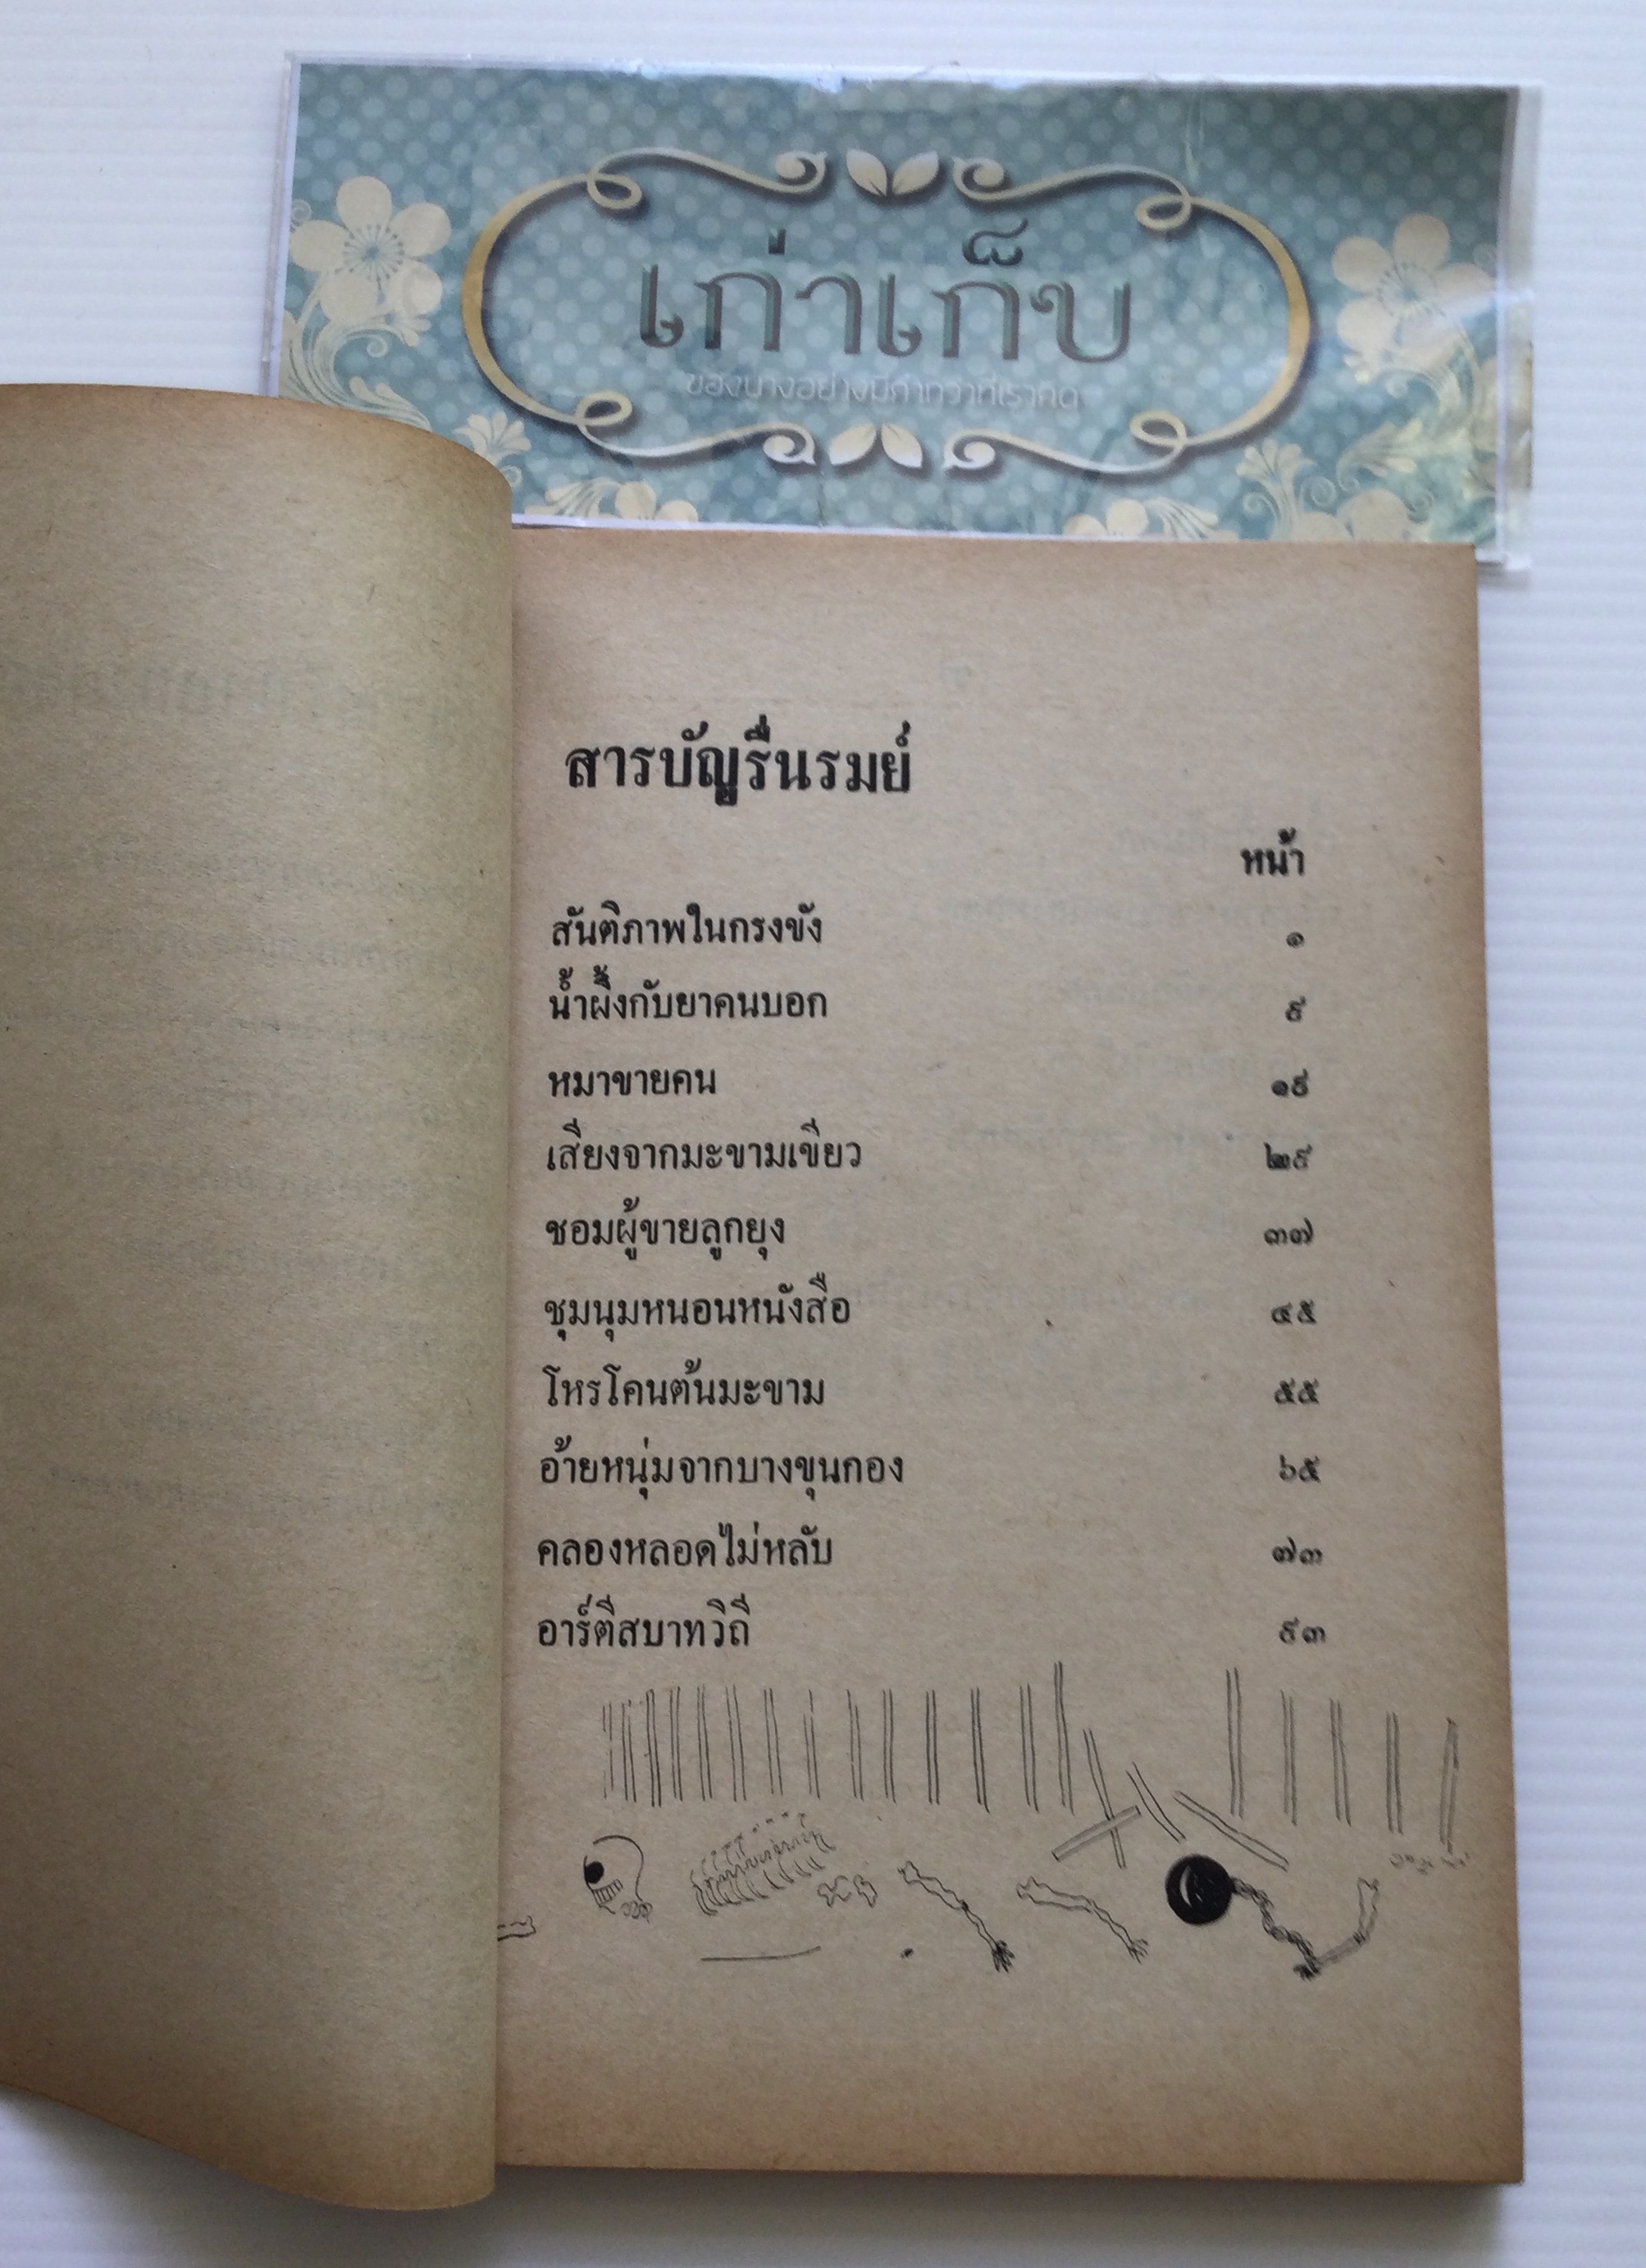 เก่าเก็บ
ของบางอย่างมีค่ากว่าที่เราคิด
สารบัญรื่นรมย์
หน้า
สันติภาพในกรงขัง ๑
น้ำผึ้งกับยาคนบอก ๙
หมาขายคน ๑๙
เสียงจากมะขามเขียว ๒๙
ชอมผู้ขายลูกยุง ๓๗
ชุมนุมหนอนหนังสือ ๔๕
โหรโคนต้นมะขาม ๕๕
อ้ายหนุ่มจากบางขุนกอง ๖๕
คลองหลอดไม่หลับ ๗๓
อาร์ตีสบาทวิถี ๙๓